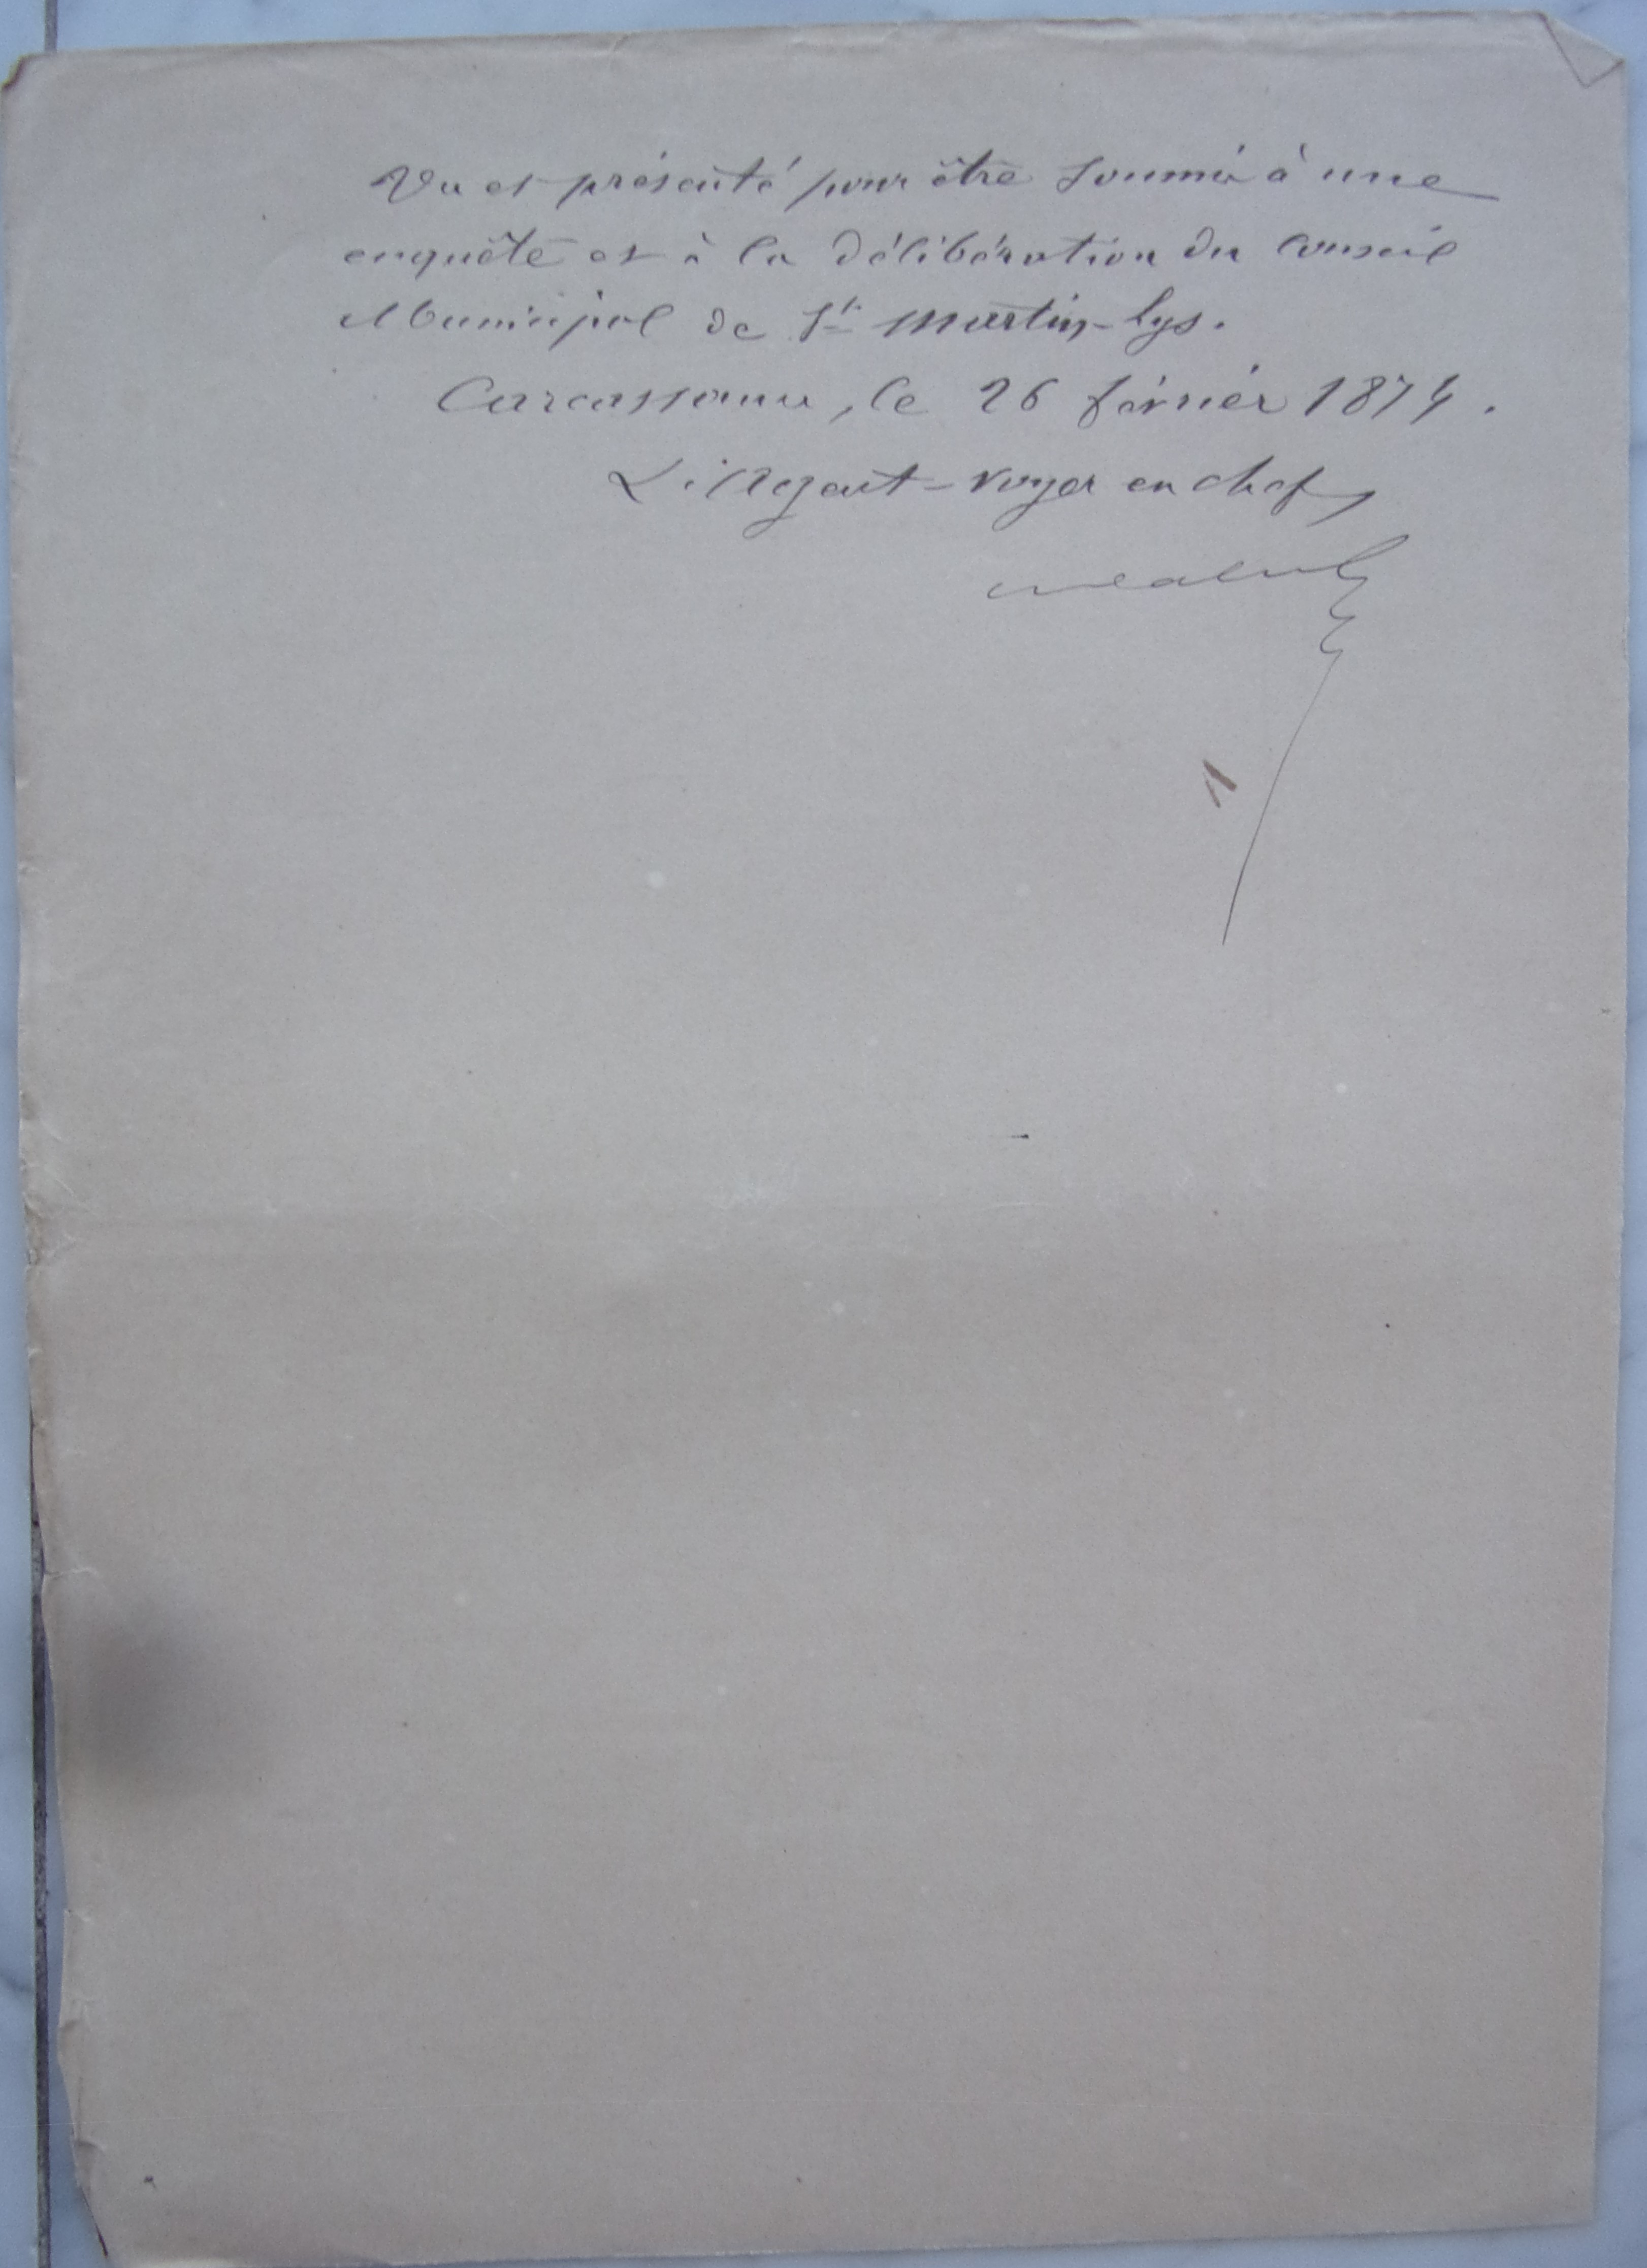 Vu et présenté pour être soumis à une
enquête et à la délibération du Conseil
Municipal de St Martin-Lys.
Carcassonne, le 26 février 1874.
L'Agent-Voyer en chef,